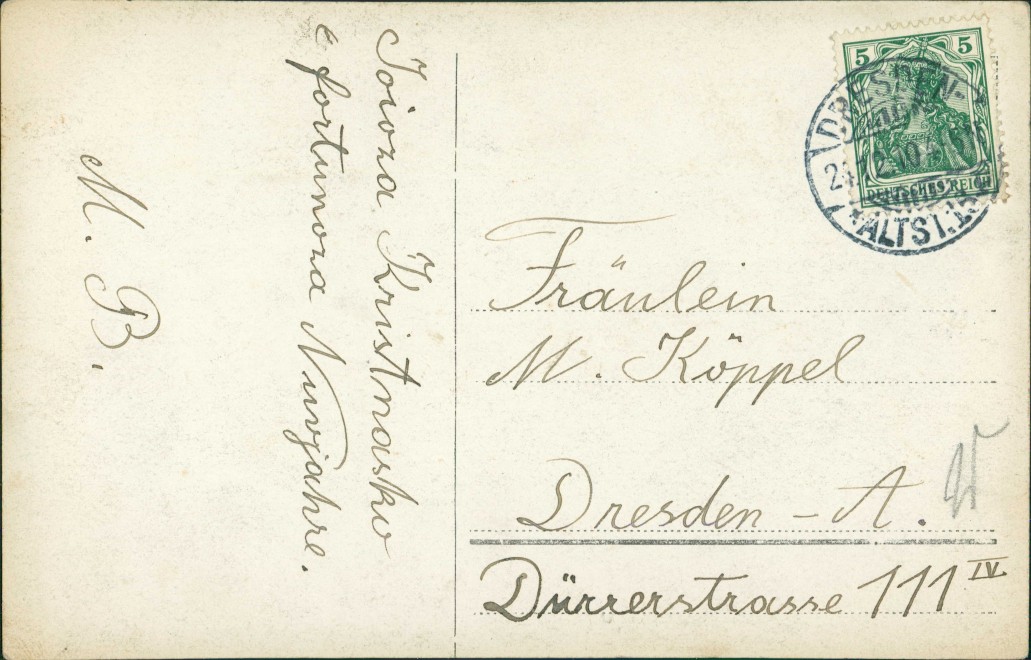 Joioza Kristnasko
e fortunoza Nuvjahre.
M. B.
5 5
DEUTSCHES REICH
DRESDEN-
ALTST.
Fräulein
M. Köppel
Dresden - A.
Dürrerstrasse 111 IV